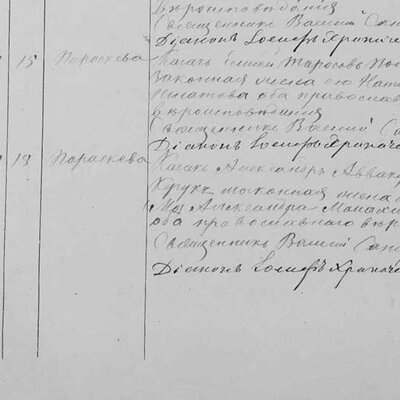 вероисповедания
Священникъ Василій Сап
Діаконъ Іосифъ Хрипач
15 Параскева Казакъ Тарасовъ
законная жена его Ната
Игнатова оба православ
вероисповедания
Священникъ Василій Са
Діаконъ Іосифъ Хрипаче
15 Параскева Казакъ Александръ Авваку
Крукъ законная жена е
Александра
оба православнаго веро
Священникъ Василій Сапе
Діаконъ Іосифъ Хрипаче